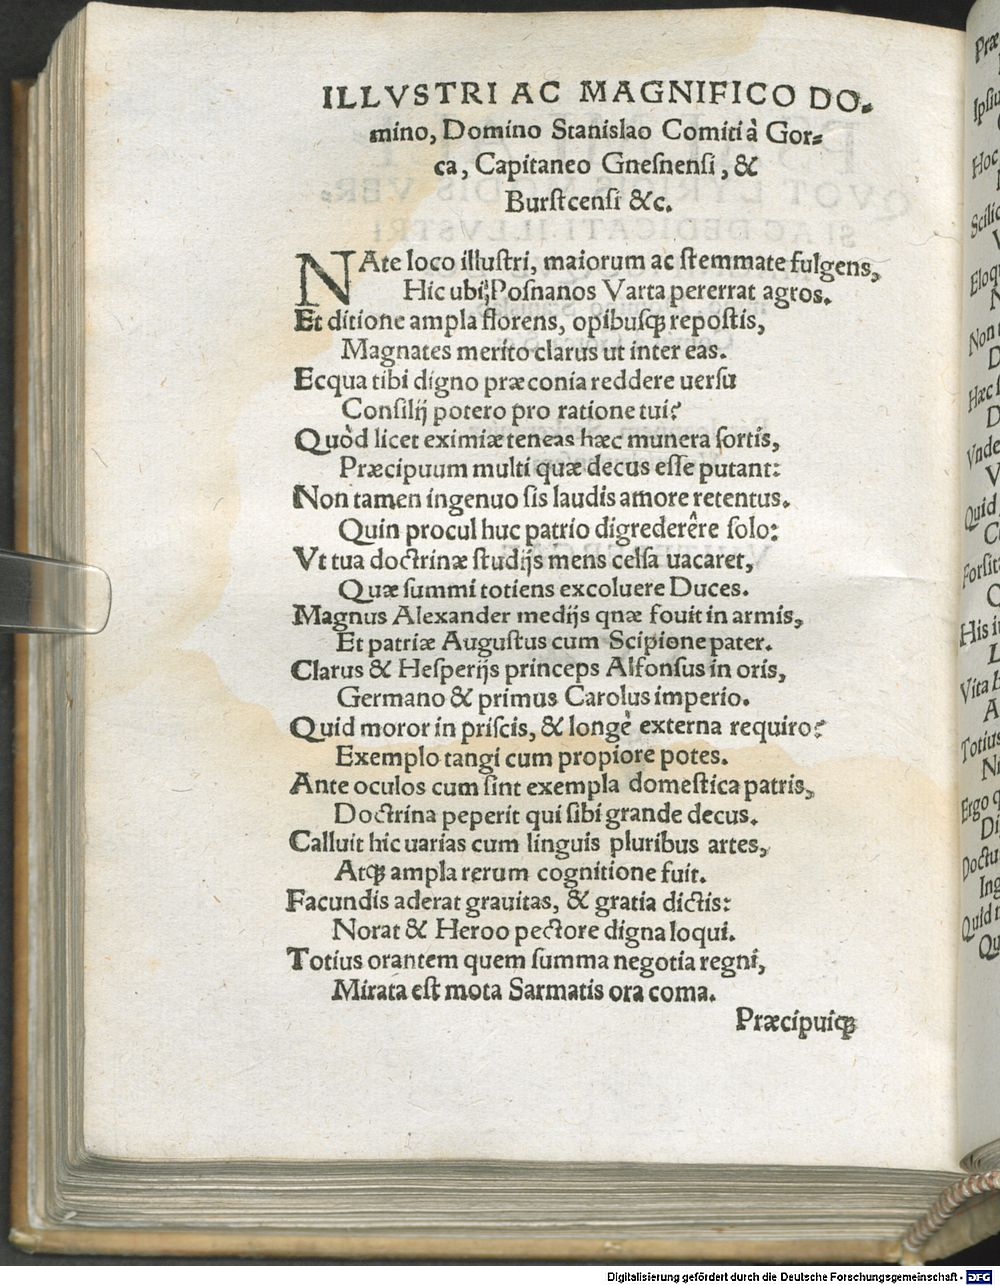 ILLVSTRI AC MAGNIFICO DO⸗
mino, Domino Stanislao Comiti à Gor⸗
ca, Capitaneo Gneſnenſi, &
Burſtcenſi &c.
NAte loco illuſtri, maiorum ac ſtemmate fulgens,
Hic ubi Poſnanos Varta pererrat agros.
Et ditione ampla florens, opibusꝗ repoſtis,
Magnates merito clarus ut inter eas.
Ecqua tibi digno præconia reddere uerſu
Conſilij potero pro ratione tui?
Quòd licet eximiæ teneas hæc munera ſortis,
Præcipuum multi quæ decus eſſe putant:
Non tamen ingenuo ſis laudis amore retentus.
Quin procul huc patrio digrederêre ſolo:
Vt tua doctrinæ ſtudijs mens celſa uacaret,
Quæ ſummi totiens excoluere Duces.
Magnus Alexander medijs qnæ fouit in armis,
Et patriæ Auguſtus cum Scipione pater.
Clarus & Heſperijs princeps Alfonſus in oris,
Germano & primus Carolus imperio.
Quid moror in priſcis, & longè externa requiro?
Exemplo tangi cum propiore potes.
Ante oculos cum ſint exempla domeſtica patris,
Doctrina peperit qui ſibi grande decus.
Calluit hic uarias cum linguis pluribus artes,
Atꝗ ampla rerum cognitione fuit.
Facundis aderat grauitas, & gratia dictis:
Norat & Heroo pectore digna loqui.
Totius orantem quem ſumma negotia regni,
Mirata eſt mota Sarmatis ora coma.
Præcipuiꝗ
Præ
Ipſiu
Hoc
Scilic
V
Eloq
N
Non
D
Hæc
D
Vnde
V
Quid
C
Forſita
His i
L
Vita
A
Totius
N
Ergo q
Di
Doctu
Ing
Quid
Qu
Digitalisierung gefördert durch die Deutsche Forschungsgemeinschaft - DFG